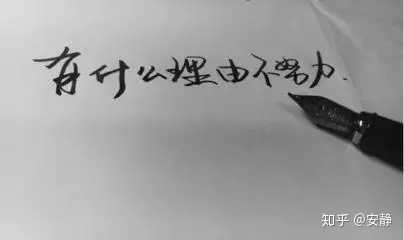 有什么理由不努力.
知乎 @安静